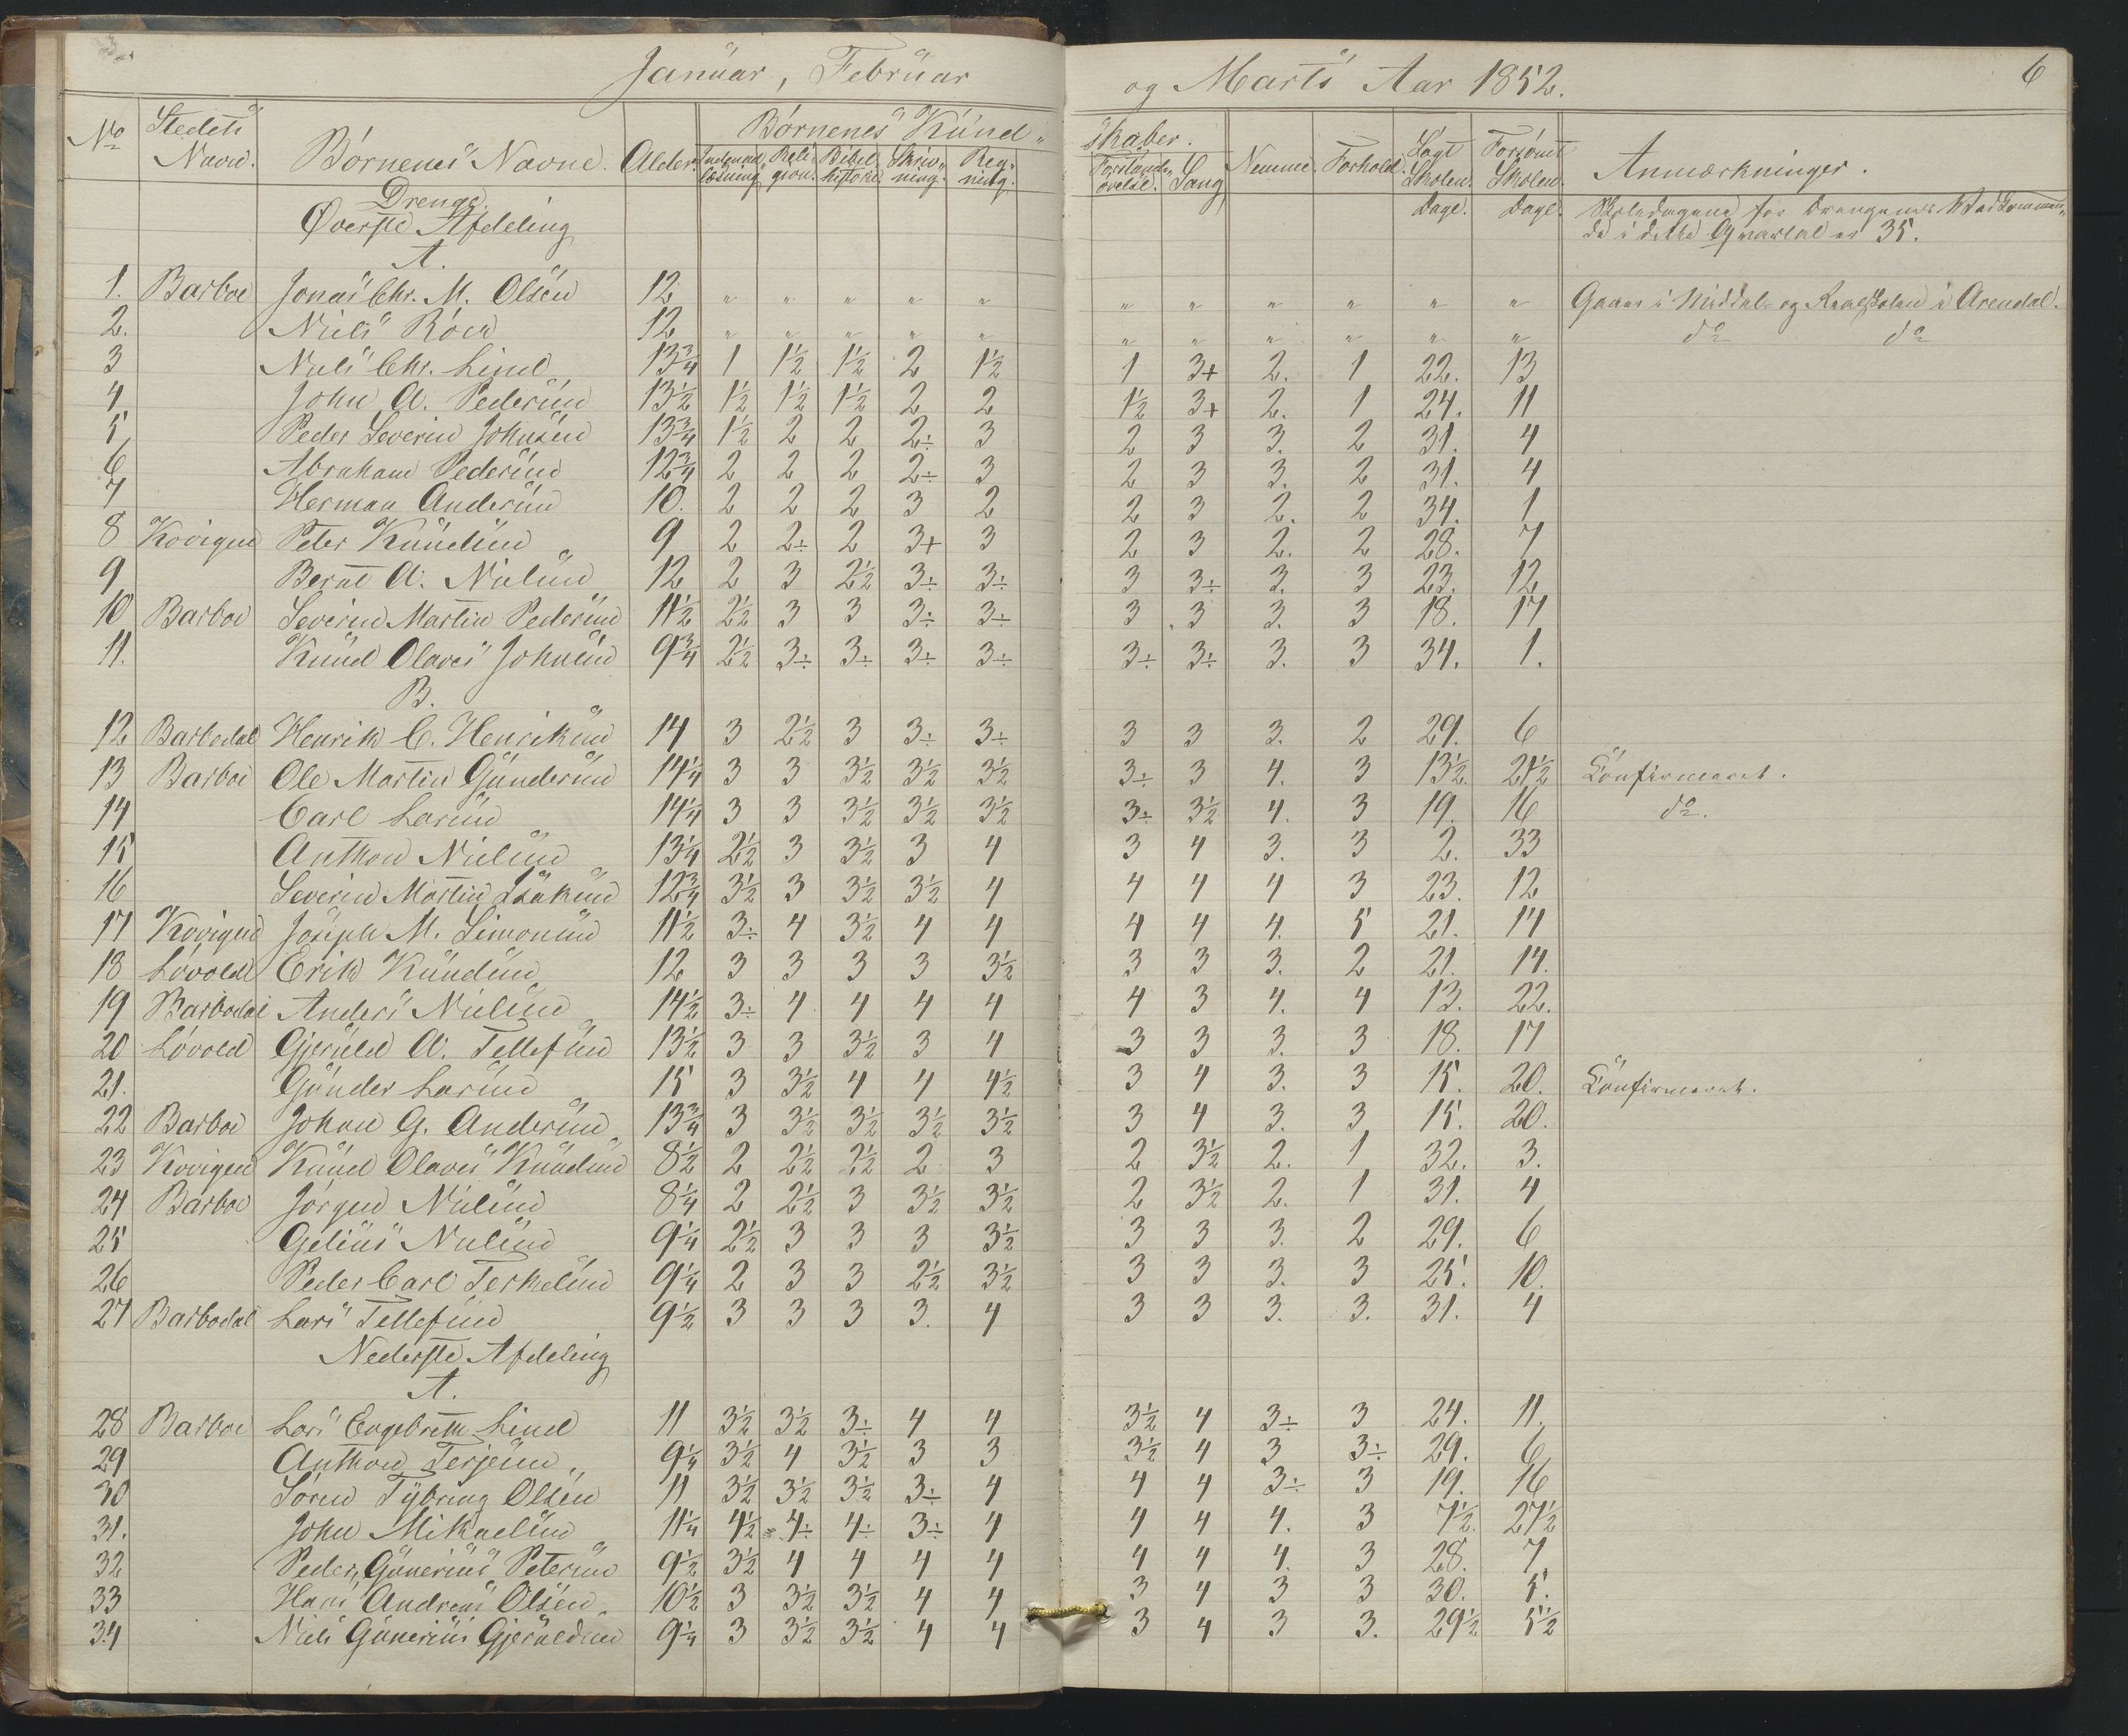 Januar, Februar og Marts Aar 1852. 6
No Stedets Navn. Børnenes Navne. Alder. Børnenes Kund- skaber. Nemme. Forhold. Søgt Skolen. Forsømt Skolen. Anmærkninger.
Indenadlæsning Religion. Bibelhistorie Skrivning. Regning. Forstandsøvelse. Sang
Drenge. Dage. Dage. Skoledagene for Drengenes Vedkommen-
Øverste Afdeling de i dette Qvartal er 35.
A.
1. Barboe Jonas Chr. M. Olsen 12 " " " " " " " " " " " Gaaer i Middel- og Realskolen i Arendal.
2. Niels Röed 12 " " " " " " " " " " " do do
3 Niels Chr. Lind 13 3/4 1 1 1/2 1 1/2 2 1 1/2 1 3+ 2. 1 22. 13
4 John A. Pedersen 13 1/2 1 1/2 1 1/2 1 1/2 2 2 1 1/2 3+ 2. 1 24. 11
5 Peder Severin Johnsen 13 3/4 1 1/2 2 2 2÷ 3 2 3 3. 2 31. 4
6 Abraham Pedersen 12 3/4 2 2 2 2÷ 3 2 3 3. 2 31. 4
7 Herman Andersen 10. 2 2 2 3 2 2 3 2. 2 34. 1
8 Kovigen Peter Knudsen 9 2 2÷ 2 3+ 3 2 3 2. 2 28. 7
9 Bernt A. Nielsen 12 2 3 2 1/2 3÷ 3÷ 3 3÷ 3. 3 23. 12
10 Barboe Severin Martin Pedersen 11 1/2 2 1/2 3 3 3÷ 3÷ 3 3 3. 3 18. 17
11. Knud Olaves Johnsen 9 3/4 2 1/2 3÷ 3÷ 3÷ 3÷ 3÷ 3÷ 3. 3 34. 1.
B.
12 Barbodal Henrik C. Henriksen 14 3 2 1/2 3 3÷ 3÷ 3 3 3. 2 29. 6
13 Barboe Ole Martin Gundersen 14 1/4 3 3 3 1/2 3 1/2 3 1/2 3÷ 3 4. 3 13 1/2. 21 1/2 Confirmeret.
14 Carl Larsen 14 1/4 3 3 3 1/2 3 1/2 3 1/2 3÷ 3 1/2 4. 3 19. 16 do.
15 Anthon Nielsen 13 1/4 2 1/2 3 3 1/2 3 4 3 4 3. 3 2. 33
16 Severin Martin Isaksen 12 3/4 3 1/2 3 3 1/2 3 1/2 4 4 4 4 3 23. 12
17 Kovigen Joseph M. Simonsen 11 1/2 3÷ 4 3 1/2 4 4 4 4 4. 5 21. 14
18 Løvold Erik Knudsen 12 3 3 3 3 3 1/2 3 3 3. 2 21. 14.
19 Barbodal Anders Nielsen 14 1/2 3÷ 4 4 4 4 4 3 4. 4 13. 22.
20 Løvold Gjeruld A. Tellefsen 13 1/2 3 3 3 1/2 3 4 3 3 3. 3 18. 17
21. Gunder Larsen 15 3 3 1/2 4 4 4 1/2 3 4 3. 3 15. 20. Confirmeret.
22 Barboe Johan G. Andersen 13 3/4 3 3 1/2 3 1/2 3 1/2 3 1/2 3 4 3. 3 15. 20.
23 Kovigen Knud Olaves Knudsen 8 1/2 2 2 1/2 2 1/2 2 3 2 3 1/2 2. 1 32. 3.
24 Barboe Jörgen Nielsen 8 1/4 2 2 1/2 3 3 1/2 3 1/2 2 3 1/2 2. 1 31. 4
25 Gelius Nielsen 9 1/4 2 1/2 3 3 3 3 1/2 3 3 3. 2 29. 6
26 Peder Carl Terkelsen 9 1/4 2 3 3 2 1/2 3 1/2 3 3 3. 3 25. 10.
27 Barbodal Lars Tellefsen 9 1/2 3 3 3 3. 4 3 3 3. 3. 31. 4
Nederste Afdeling
A.
28 Barboe Lars Engebreth Lind 11 3 1/2 3 1/2 3÷ 4 4 3 1/2 4 3÷ 3 24. 11.
29 Anthon Terjesen 9 1/4 3 1/2 4 3 1/2 3 3 3 1/2 4 3 3÷ 29. 6
30 Søren Tybring Olsen 11 3 1/2 3 1/2 3 1/2 3÷ 4 4 4 3÷ 3 19. 16
31. John Mikaelsen 11 1/4 4 1/2 4÷ 4÷ 3÷ 4 4 4 4. 3 7 1/2. 27 1/2
32 Peder Gunerius Petersen 9 1/2 3 1/2 4 4 4 4 4 4 4. 3 28. 7
33 Hans Andreas Olsen 10 1/2 3 3 1/2 3 1/2 4 4 3 4 3 3 30. 5.
34 Niels Gunerius Gjeruldsen 9 1/4 3 3 1/2 3 1/2 4 4 3 4 3 3. 29 1/2 5 1/2